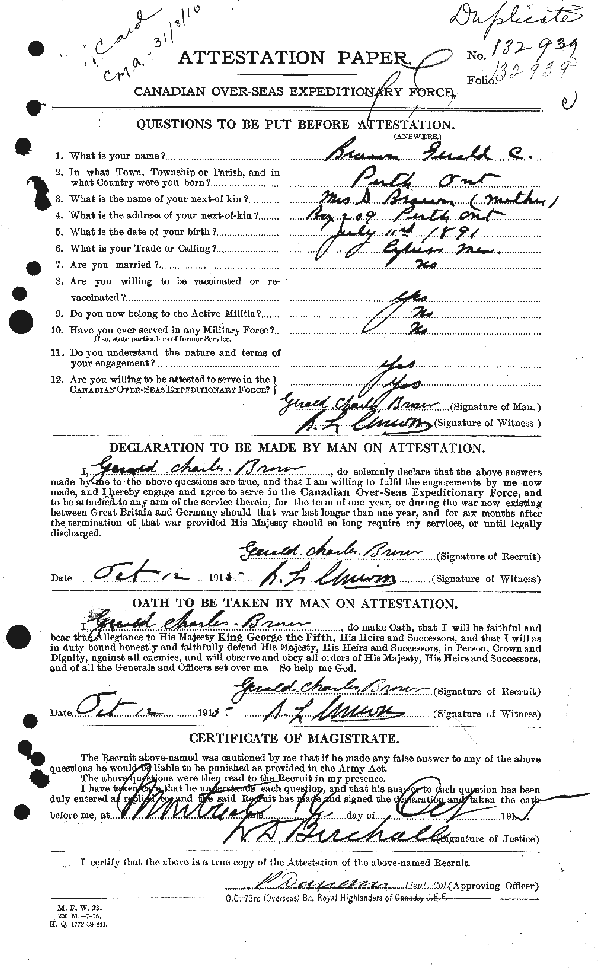 Duplicate
Card
CMA. 31/8/16
ATTESTATION PAPER. No. 132-939
Folio. 132939
CANADIAN OVER-SEAS EXPEDITIONARY FORCE,
QUESTIONS TO BE PUT BEFORE ATTESTATION.
(ANSWERS.)
1. What is your name? Brown Gerald C.
2. In what Town, Township or Parish, and in
what Country were you born? Perth Ont
3. What is the name of your next-of kin? Mrs D Brown (Mother)
4. What is the address of your next-of-kin? Box 209 Perth Ont
5. What is the date of your birth? July 1891
6. What is your Trade or Calling?
7. Are you married? No
8. Are you willing to be vaccinated or re-
vaccinated? Yes
9. Do you now belong to the Active Militia? No
10. Have you ever served in any Military Force? No
If so, state particulars of former Service.
11. Do you understand the nature and terms of
your engagement? Yes
12. Are you willing to be attested to serve in the
CANADIAN OVER-SEAS EXPEDITIONARY FORCE? Yes
Gerald Charles Brown (Signature of Man.)
(Signature of Witness)
DECLARATION TO BE MADE BY MAN ON ATTESTATION.
I, Gerald Charles Brown, do solemnly declare that the above answers
made by me to the above questions are true, and that I am willing to fulfil the engagements by me now
made, and I hereby engage and agree to serve in the Canadian Over-Seas Expeditionary Force, and
to be attached to any arm of the service therein, for the term of one year, or during the war now existing
between Great Britain and Germany should that war last longer than one year, and for six months after
the termination of that war provided His Majesty should so long require my services, or until legally
discharged.
Gerald Charles Brown (Signature of Recruit)
Date Oct 12 1915. (Signature of Witness)
OATH TO BE TAKEN BY MAN ON ATTESTATION.
I, Gerald Charles Brown, do make Oath, that I will be faithful and
bear true Allegiance to His Majesty King George the Fifth, His Heirs and Successors, and that I will as
in duty bound honestly and faithfully defend His Majesty, His Heirs and Successors, in Person, Crown and
Dignity, against all enemies, and will observe and obey all orders of His Majesty, His Heirs and Successors,
and of all the Generals and Officers set over me. So help me God.
Gerald Charles Brown (Signature of Recruit)
Date Oct 12 1915 (Signature of Witness)
CERTIFICATE OF MAGISTRATE.
The Recruit above-named was cautioned by me that if he made any false answer to any of the above
questions he would be liable to be punished as provided in the Army Act.
The above questions were then read to the Recruit in my presence.
I have taken care that he understands each question, and that his answer to each question has been
duly entered as replied to, and the said Recruit has made and signed the declaration and taken the oath
before me, at Montreal day of Oct 1915
(Signature of Justice)
I certify that the above is a true copy of the Attestation of the above-named Recruit.
Lieut. Col. (Approving Officer)
O.C. 73rd (Overseas) Bn. Royal Highlanders of Canada C.E.F.
M. F. W. 23.
H. Q. 1772-39-841.